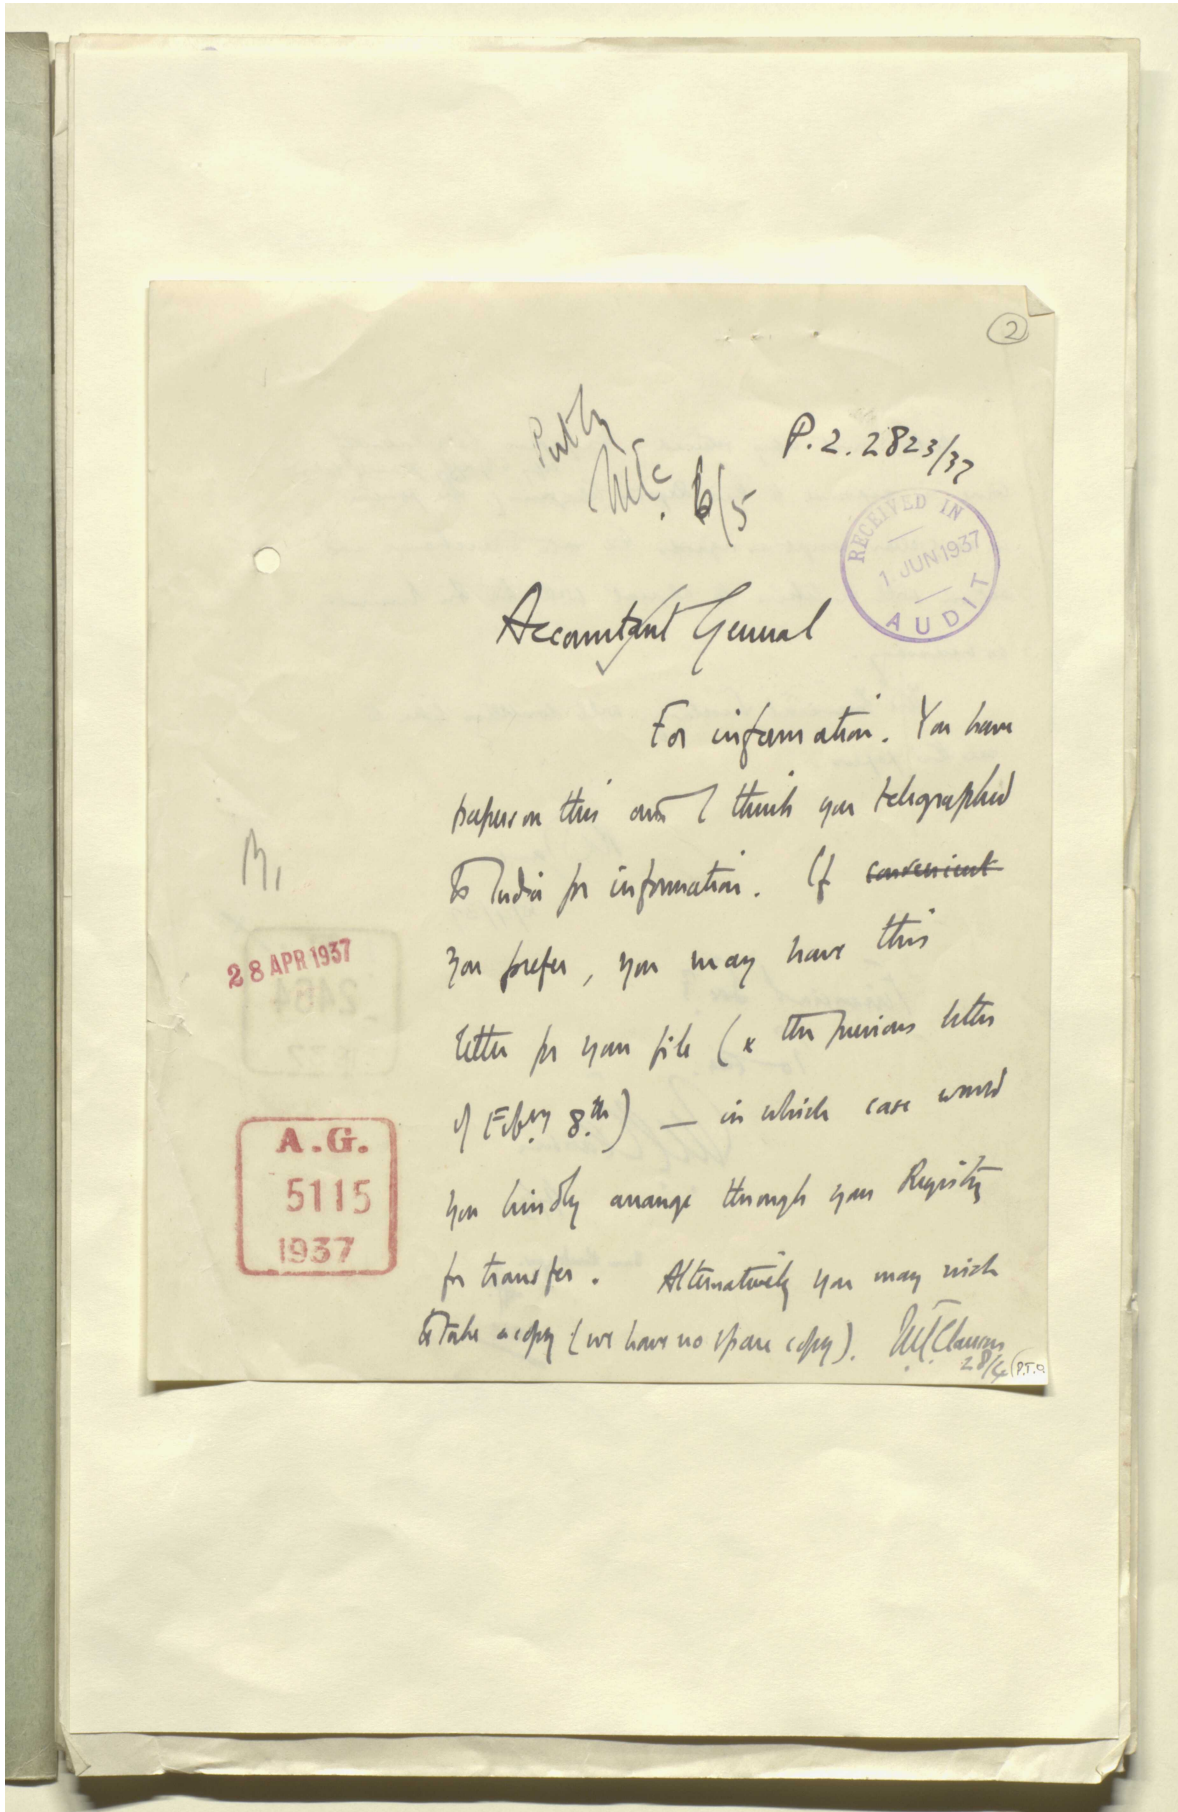 2
Put by
P.Z. 2823/37
6/5
RECEIVED IN
1 JUN 1937
AUDIT
Accountant General
For information. You have
papers on this and I think you telegraphed
to India for information. If convenient
you prefer, you may have this
letter for your file (& the previous letter
of Febry 8th) — in which case would
you kindly arrange through your Registry
for transfer. Alternatively you may wish
to take a copy (we have no spare copy). M.J. Clauson
28/4
P.T.O
28 APR 1937
A.G.
5115
1937